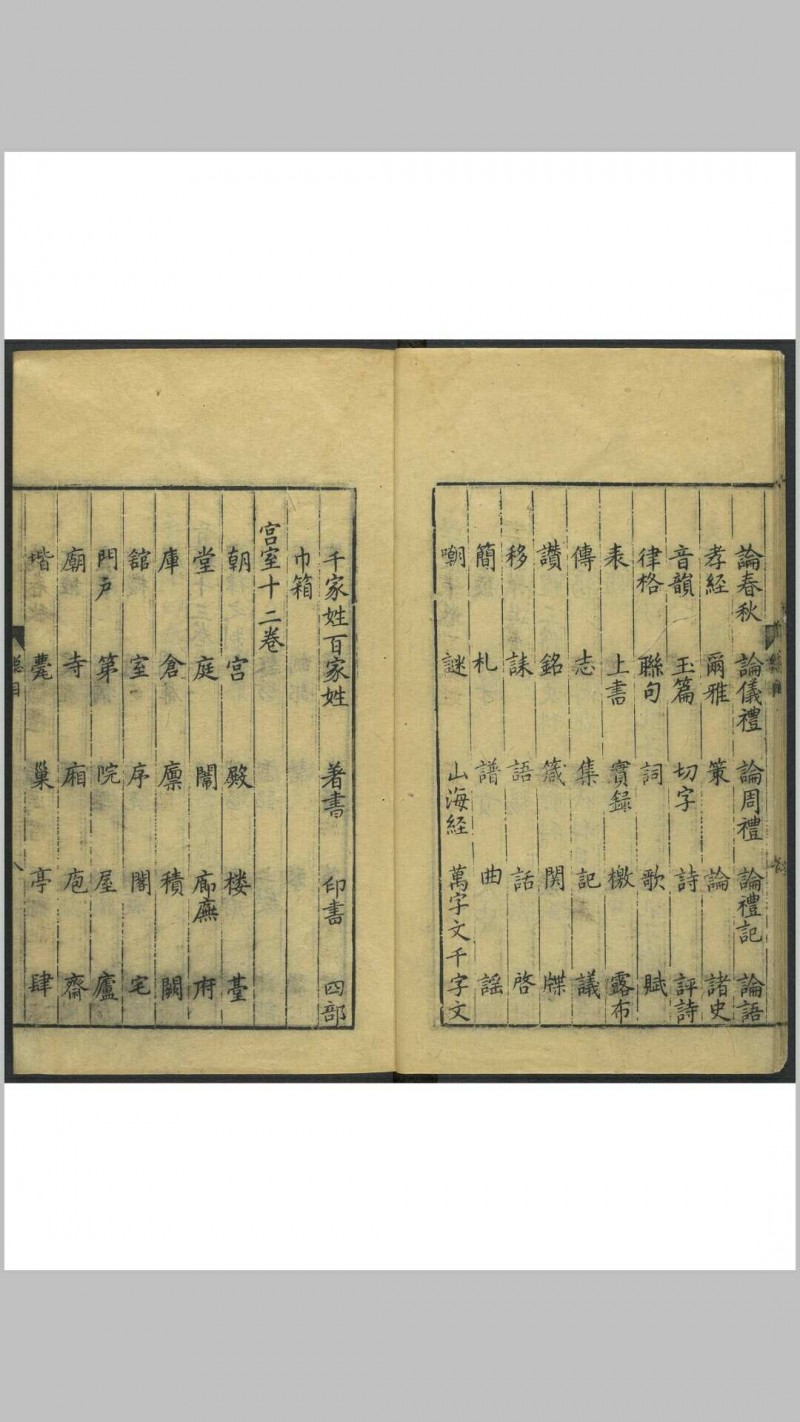 論春秋　論儀禮　論周禮　論禮記　論語
孝経　爾雅　策　論　諸史
音韻　玉篇　切字　詩　評詩
律格　聮句　詞　歌　賦
表　上書　實録　檄　露布
傳　志　集　記　議
讚　銘　箴　関　牒
移　誄　語　話　啓
簡　札　譜　曲　謡
嘲　謎　山海経　萬字文千字文
千家姓百家姓　著書　印書　四部
巾箱
宫室十二卷
朝　宫　殿　楼　臺
堂　庭　闈　廊廡　府
庫　倉　廪　積　闕
舘　室　序　閣　宅
門戸　第　院　屋　廬
廟　寺　廂　庖　齋
堦　甍　巢　亭　肆
総目
八